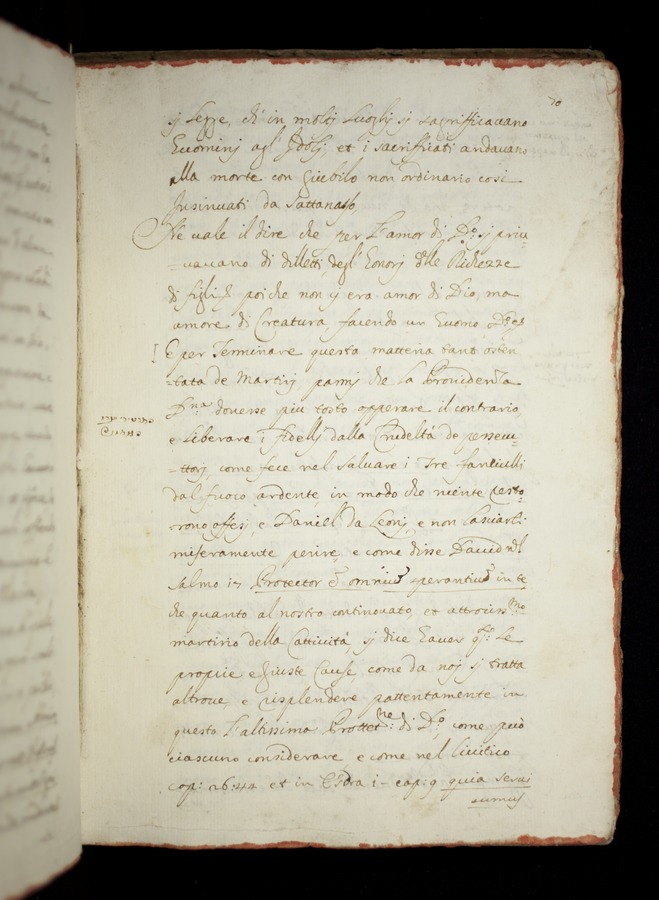 70
si legge, ch'in molti luoghi si sacrificavano
Euomini agl' Idoli, et i sacrificati andavano
alla morte con giubilo non ordinario così
Insinuati da Sattanasso,
Ne vale il dire che per l'amor di D:o si priu=
=vavano di diletti degl' Eonori delle Richezze
di figli poi che non ui era amor di Dio, ma
amore di Creatura, facendo un Euomo
E per Terminare questa materia tant'osten=
=tata de Martirij parmi che la Providenza
D:na dovesse piu tosto opperare il contrario,
e liberare i fidelli dalla Crudeltà de persecu=
=ttori, come fece nel salvare i Tre fanciulli
dal fuoco ardente in modo che niente resto=
=rono offesi, e Daniell da Leoni, e non lasciarli
miseramente perire, e come disse David nel
Salmo 17 Protector e omniu sperantiu in te
che quanto al nostro continovato, et attrociss:mo
martirio della Cattività, si dice Eaver q:to le
proprie e Giuste Cause, come da noi si tratta
altrove, e risplendere pattentamente in
questo l'altissima Prottet:ne di D:o, come può
ciascuno considerare e come nel Livitico
cap: 26:44 et in Esdra i- cap:9 quia servi
sumus